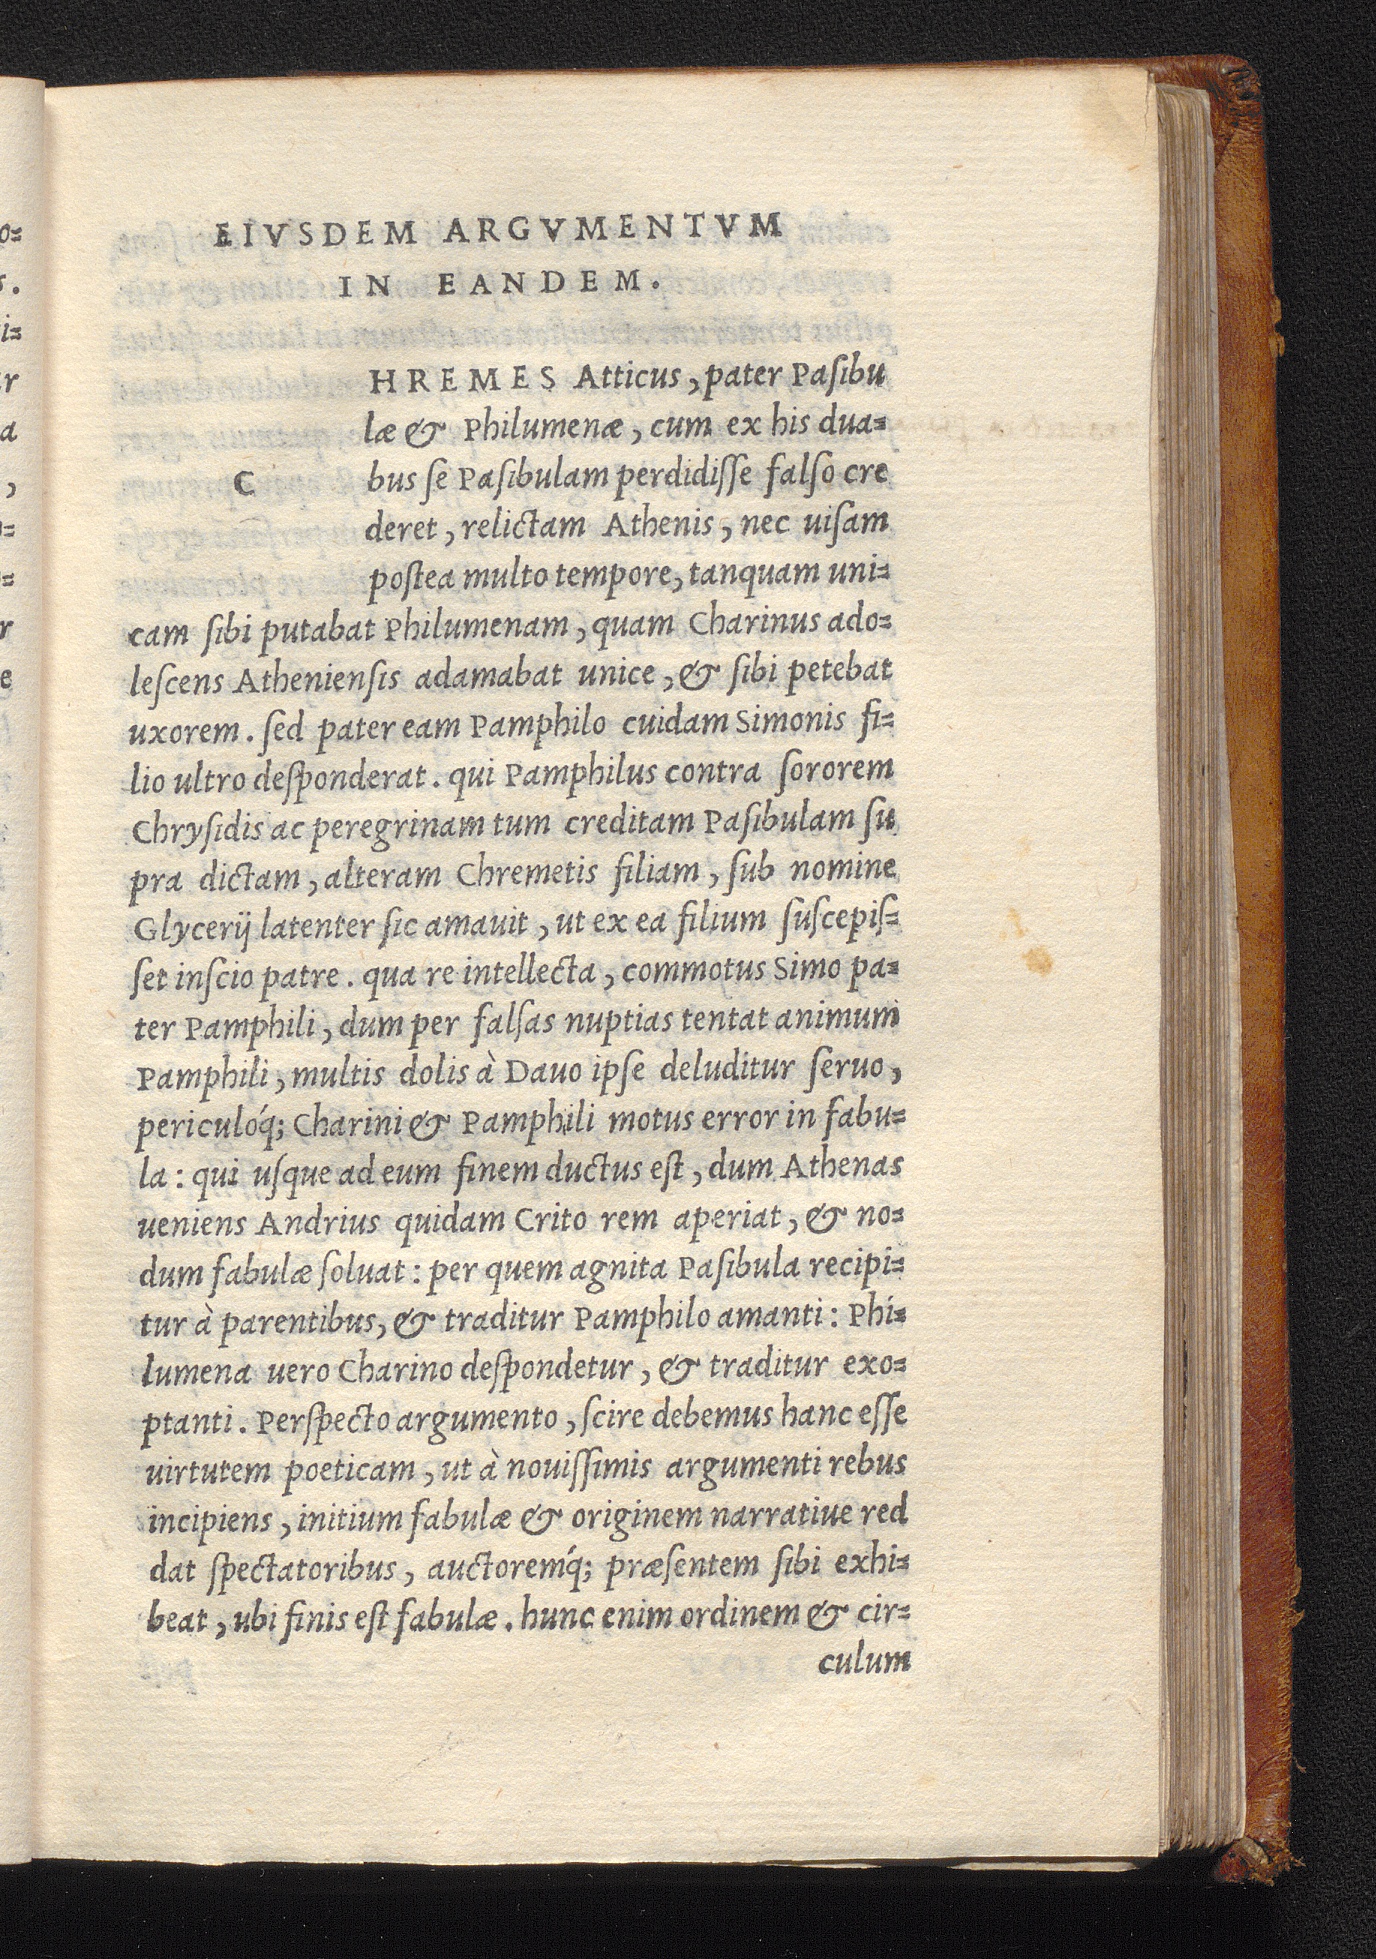 EIVSDEM ARGVMENTVM
IN EANDEM.
HREMES Atticus, pater Paſibu
læ & Philumenæ, cum ex his dua=
C bus ſe Paſibulam perdidiſſe falſo cre
deret, relictam Athenis, nec uiſam
poſtea multo tempore, tanquam uni=
cam ſibi putabat Philumenam, quam Charinus ado=
leſcens Athenienſis adamabat unice, & ſibi petebat
uxorem. ſed pater eam Pamphilo cuidam Simonis fi=
lio ultro deſponderat. qui Pamphilus contra ſororem
Chryſidis ac peregrinam tum creditam Paſibulam ſu
pra dictam, alteram Chremetis filiam, ſub nomine
Glycerij latenter ſic amauit, ut ex ea filium ſuſcepiſ=
ſet inſcio patre. qua re intellecta, commotus Simo pa=
ter Pamphili, dum per falſas nuptias tentat animum
Pamphili, multis dolis à Dauo ipſe deluditur ſeruo,
periculóq; Charini & Pamphili motus error in fabu=
la: qui uſque ad eum finem ductus eſt, dum Athenas
ueniens Andrius quidam Crito rem aperiat, & no=
dum fabulæ ſoluat: per quem agnita Paſibula recipi=
tur à parentibus, & traditur Pamphilo amanti: Phi=
lumena uero Charino deſpondetur, & traditur exo=
ptanti. Perſpecto argumento, ſcire debemus hanc eſſe
uirtutem poeticam, ut à nouiſſimis argumenti rebus
incipiens, initium fabulæ & originem narratiue red
dat ſpectatoribus, auctoremq́; præſentem ſibi exhi=
beat, ubi finis eſt fabulæ. hunc enim ordinem & cir=
culum